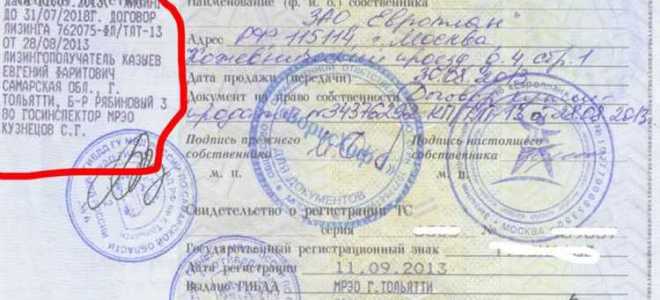 ДО 31/07/2018Г. ДОГОВОР
ЛИЗИНГА 762075-ФЛ/ТЛТ-13
ОТ 28/08/2013
ЛИЗИНГОПОЛУЧАТЕЛЬ КАЗУЕВ
ЕВГЕНИЙ ФАРИТОВИЧ
САМАРСКАЯ ОБЛ., Г.
ТОЛЬЯТТИ, Б-Р РЯБИНОВЫЙ 3
ВО ГОСИНСПЕКТОР МРЭО
КУЗНЕЦОВ С.Г.
Наименование (ф. и. о.) собственника
ЗАО "Европлан"
Адрес РФ 115114 г. Москва
Кожевнический проезд д. 4, стр. 1
Дата продажи (передачи) 30.08.2013
Документ на право собственности Договор купли-
продажи
Подпись прежнего собственника
Подпись настоящего собственника
м. п.
м. п.
ДЛЯ ДОКУМЕНТОВ
МОСКВА
Свидетельство о регистрации ТС
серия №
Государственный регистрационный знак
Дата регистрации 11.09.2013
Выдано ГИБДД МРЭО Г.ТОЛЬЯТТИ